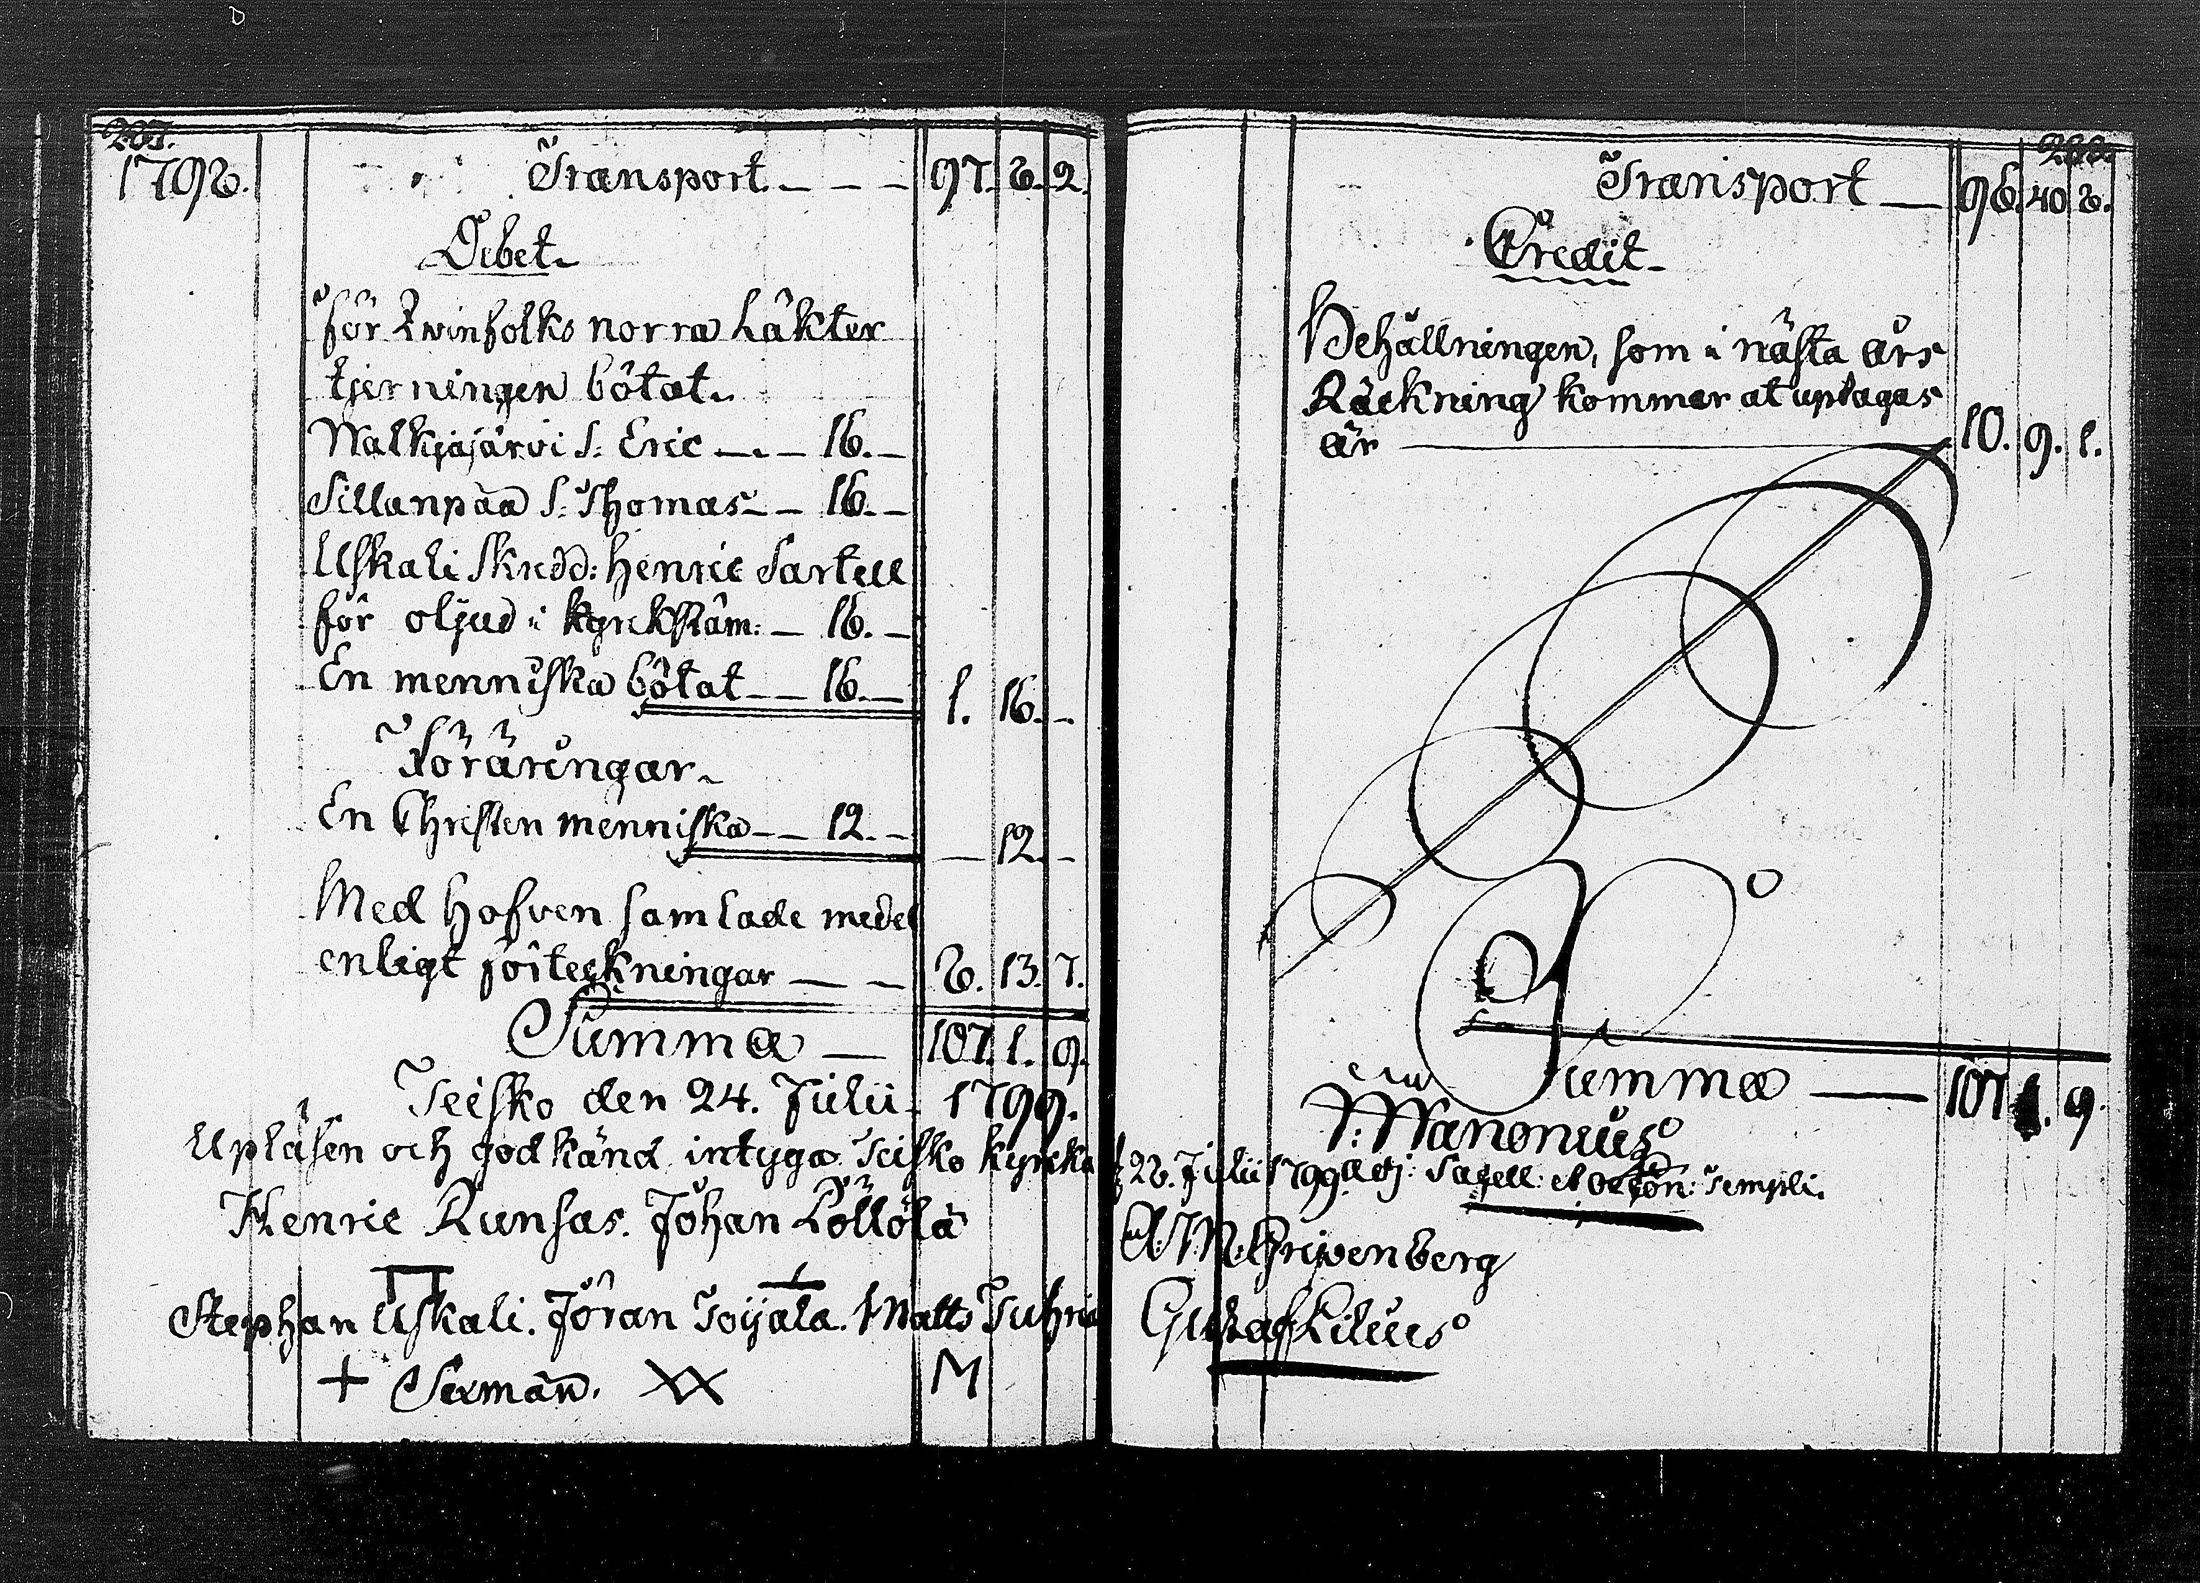 287.
1798.
Transport. — — — 97. 8. 2.
Debet.
för Qwinfolks norra Läkter
tjerningen bötat.
Walkjajärvi S: Eric — . — 16. —
Sillanpää S: Thomas — — 16. —
Uskali Skredd: Henric Sartell
för oljud i kyrkstäm: — 16. —
En menniska bötat — — 16. — 1. 16. —
Föräringar.
En Christen menniska — — 12. — — 12. —
Med Hofven samlade medel
enligt förteckningar — — 8. 13. 7.
Summa — 107. 1. 9.
Teisko den 24. Julii 1799.
Upläsen och godkänd intyga Teisko kyrcka
Henric Runsas. Johan Löllölä
Stephan Uskali. Jöran Toijala. Matts Tuhri
+ Sexmän. XX M
288.
Transport — 96. 40. 8.
Credit.
Behållningen, som i nästa års
Räckning kommer at uptagas
är — 10. 9. 1.
Summa — 107. 1. 9.
J: Wanonius
28. Julii 1799. adj: Sacell:
Gustaf Lilius